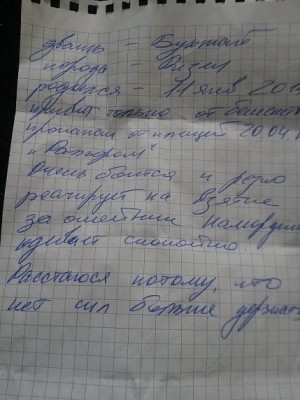 звать - Буржой
порода - Ризен
родился - 11 янв 201
привит только от бешенст
пропонан от клещей 20.04.1
и "Раптором"
Очень боится и резко
реагирует на взятие
за ошейник намордник
одевает спокойно
Расстаюся потому, что
нет сил больше держать